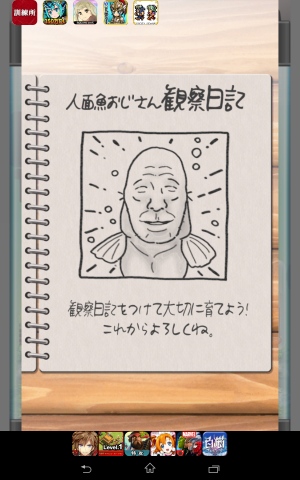 訓練所
人面魚おじさん観察日記
観察日記をつけて大切に育てよう!
これからよろしくね。
Level.1